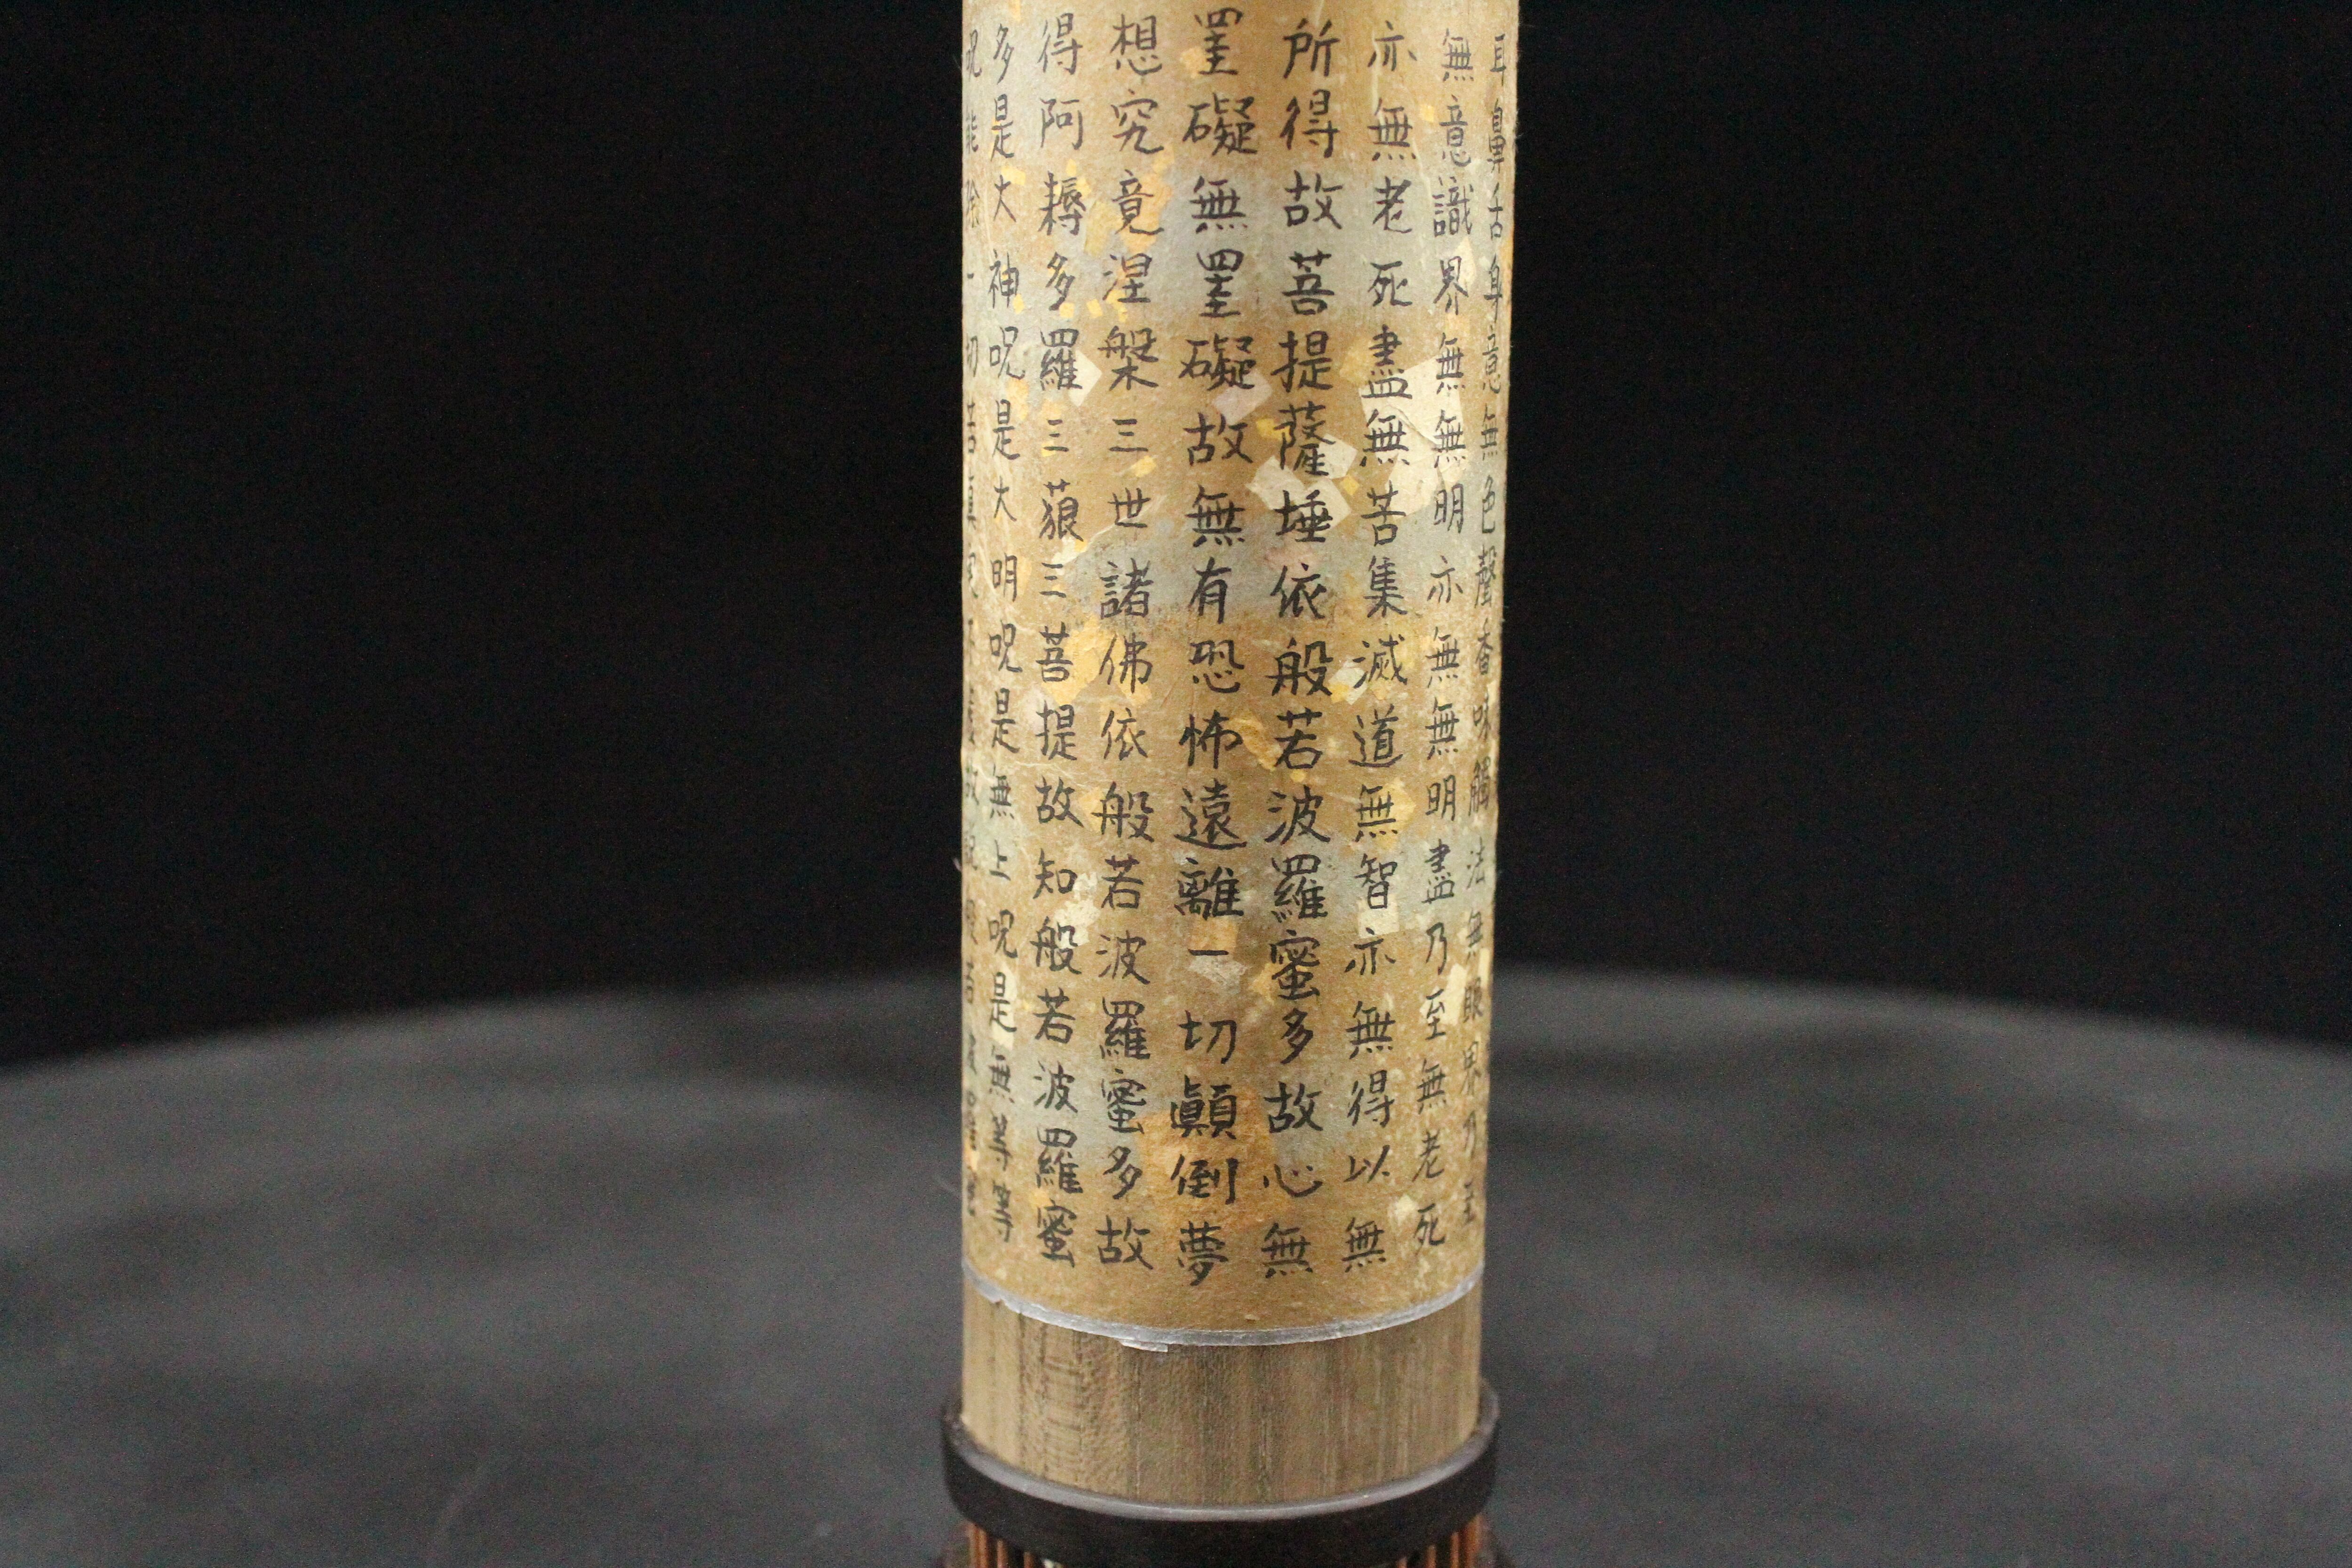 耳鼻舌身意無色聲香味觸法無眼界乃至
無意識界無無明亦無無明盡乃至無老死
亦無老死盡無苦集滅道無智亦無得以無
所得故菩提薩埵依般若波羅蜜多故心無
罣礙無罣礙故無有恐怖遠離一切顚倒夢
想究竟涅槃三世諸佛依般若波羅蜜多故
得阿耨多羅三藐三菩提故知般若波羅蜜
多是大神呪是大明呪是無上呪是無等等
呪能除一切苦